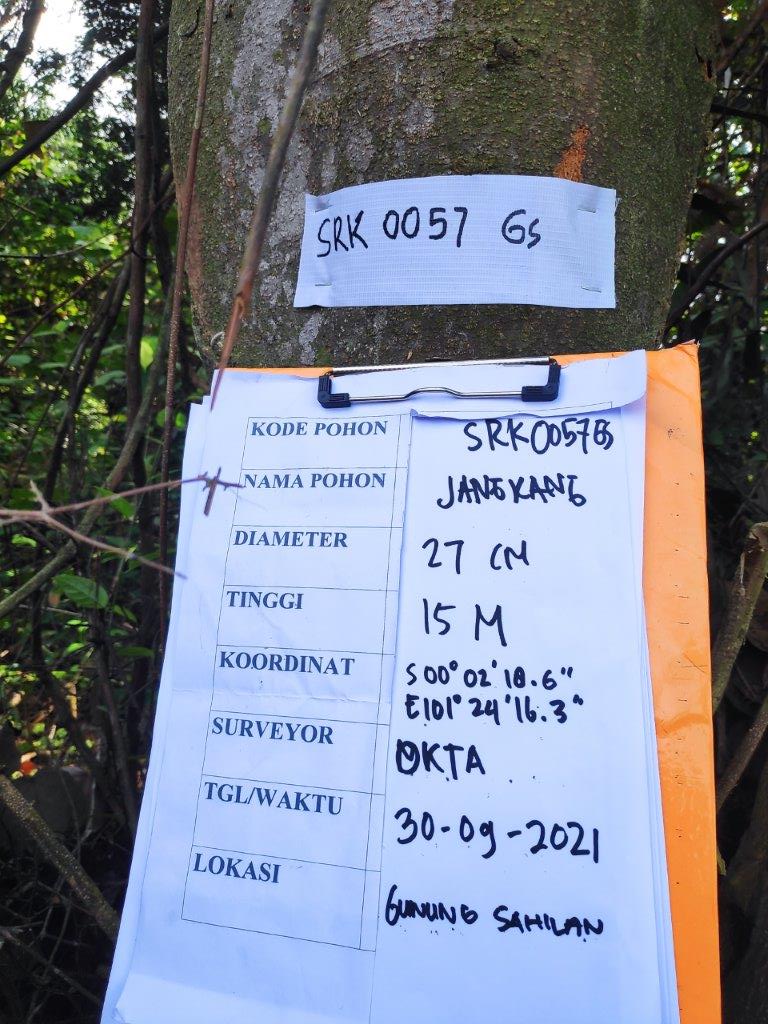 SRK 0057 Gs
KODE POHON SRK0057GS
NAMA POHON JANGKANG
DIAMETER 27 CM
TINGGI 15 M
KOORDINAT S 00° 02' 18.6"
E101° 24' 16.3"
SURVEYOR OKTA
TGL/WAKTU 30-09-2021
LOKASI GUNUNG SAHILAN